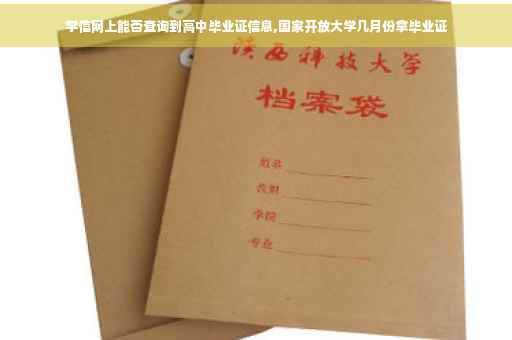 学信网上能否查询到高中毕业证信息,国家开放大学几月份拿毕业证
陕西科技大学
档案袋
姓名
学院
专业